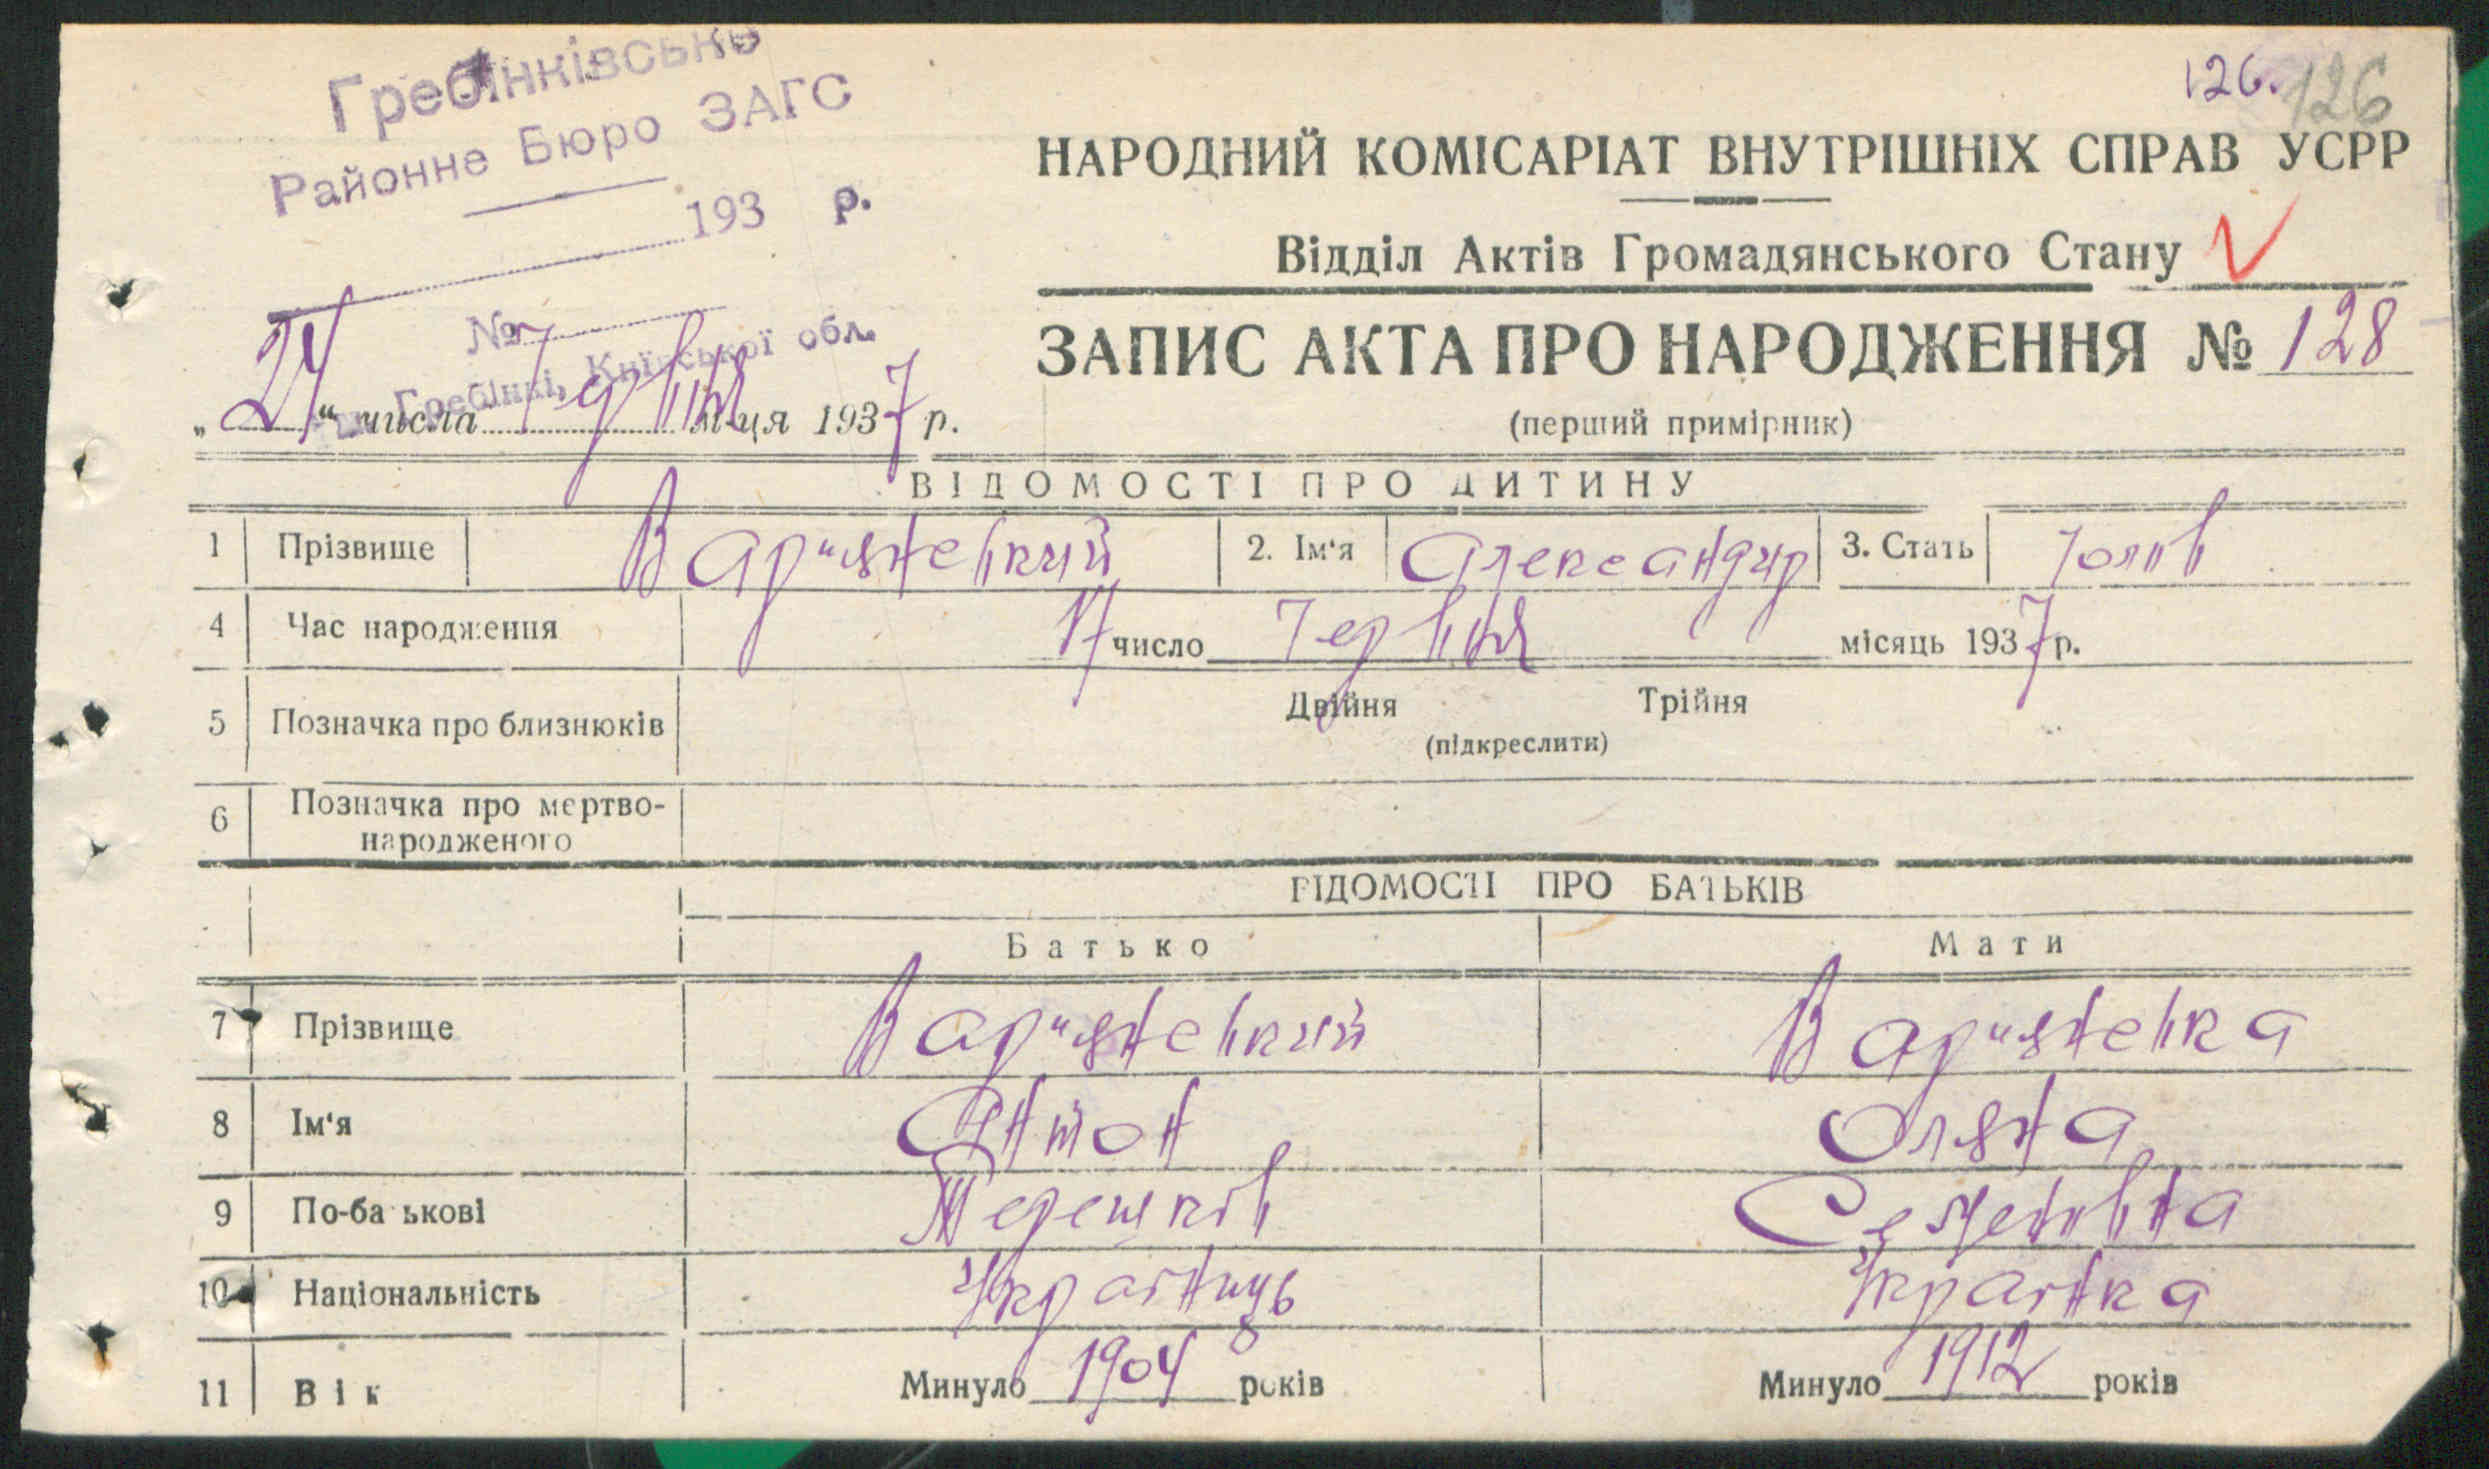 126. 126
Гребінківське
Районне Бюро ЗАГС
193 р.
№
Гребінки, Київської обл.
НАРОДНИЙ КОМІСАРІАТ ВНУТРІШНІХ СПРАВ УСРР
Відділ Актів Громадянського Стану
ЗАПИС АКТА ПРО НАРОДЖЕННЯ № 128
(перший примірник)
„24“ числа Червня м-ця 1937 р.
ВІДОМОСТІ ПРО ДИТИНУ
1 Прізвище 2. Ім'я Александир 3. Стать Чолов
4 Час народження 17 число Червня місяць 1937 р.
5 Позначка про близнюків Двійня Трійня
(підкреслити)
6 Позначка про мертво-
народженого
ВІДОМОСТІ ПРО БАТЬКІВ
Батько Мати
7 Прізвище
8 Ім'я Антон Оляна
9 По-ба ькові Терешків Семенівна
10 Національність Українець Українка
11 Вік Минуло 1904 років Минуло 1912 років